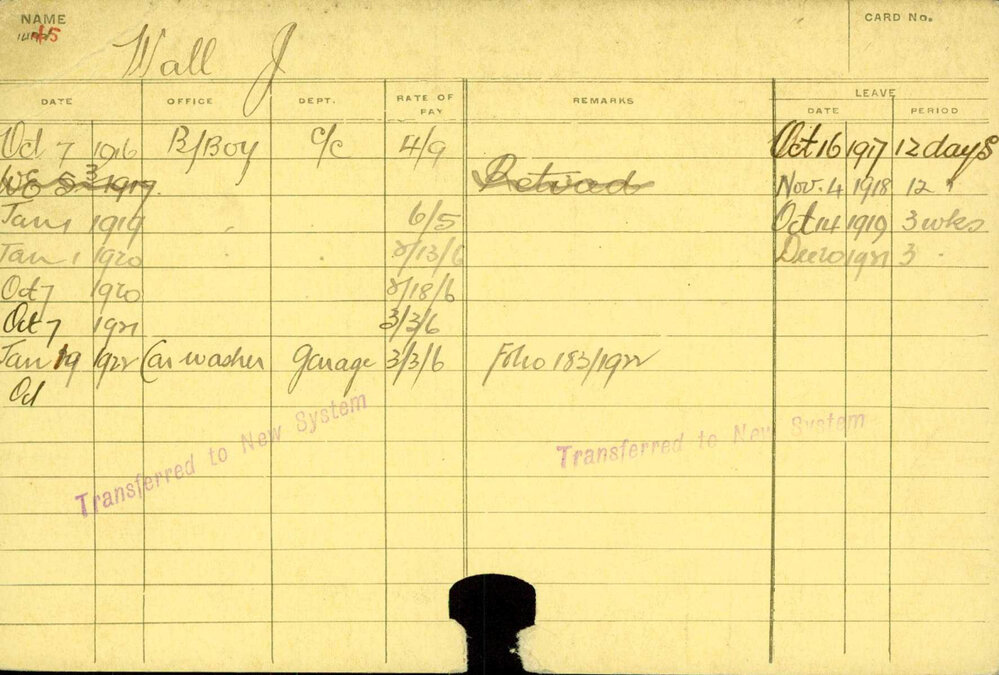 NAME
45
CARD No.
Wall J
DATE OFFICE DEPT. RATE OF PAY REMARKS LEAVE
DATE PERIOD
Oct 7 1916 B/Boy C/C 4/9 Oct 16 1917 12 days
WE 3 1917 Retired Nov. 4 1918 12 "
Jan 1 1919 6/5 Oct 14 1919 3 wks
Jan 1 1920 2/13/6 Dec 20 1921 3 "
Oct 7 1920 2/18/6
Oct 7 1921 3/3/6
Jan 19 1922 Car washer Garage 3/3/6 Folio 183/1922
Oct
Transferred to New System
Transferred to New System